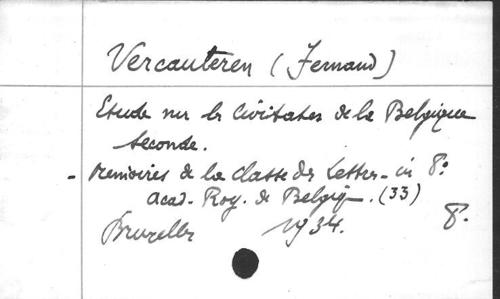 Vercauteren (Fernand)
Etude sur les Civitates de la Belgique
seconde.
- Mémoires de la classe des Lettres - in 8°
Acad. Roy. de Belgiq. (33)
Bruxelles 1934. 8°